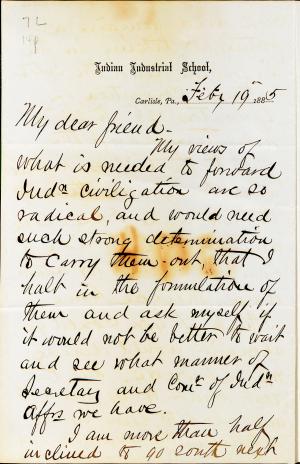 7 L
14p
Indian Industrial School,
Carlisle, Pa., Feby 19" 1885
My dear friend -
My views of
what is needed to forward
Indn civilization are so
radical, and would need
such strong determination
to carry them out, that I
halt in the formulation of
them and ask myself if
it would not be better to wait
and see what manner of
Secretary and Comr of Indn
Affrs we have.
I am more than half
inclined to go south next